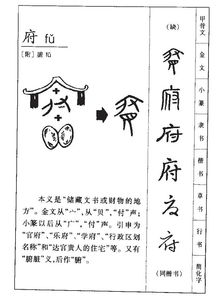 府 fǔ
[附] 腑 fǔ
本义是“储藏文书或财物的地
方”。金文从“宀”,从“贝”,“付”声;
小篆以后从“广”,“付”声。引申为
“官府”、“乐府”、“学府”、“行政区划
名称”和“达官贵人的住宅”等。又有
“脏腑”义,后作“腑”。
(缺)
府
府
府
府
府
(同楷书)
甲骨文
金文
小篆
隶书
楷书
草书
行书
简化字